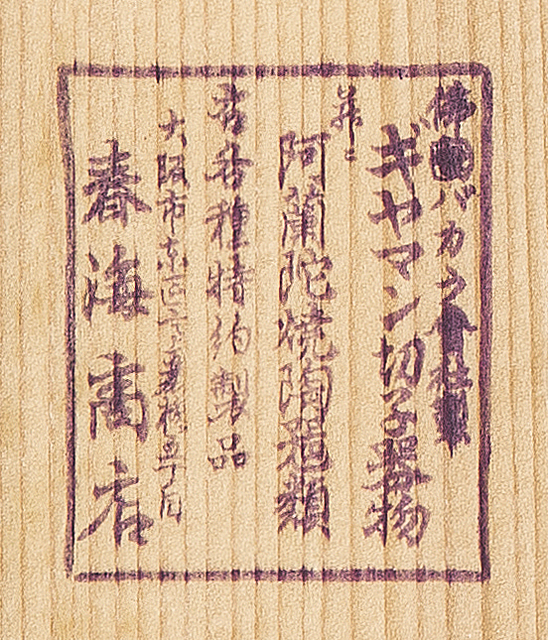 佛國バカラ會社製
ギヤマン切子器物
并ニ
阿蘭陀焼陶範類
各種特約製品
大阪市東区
春海商店